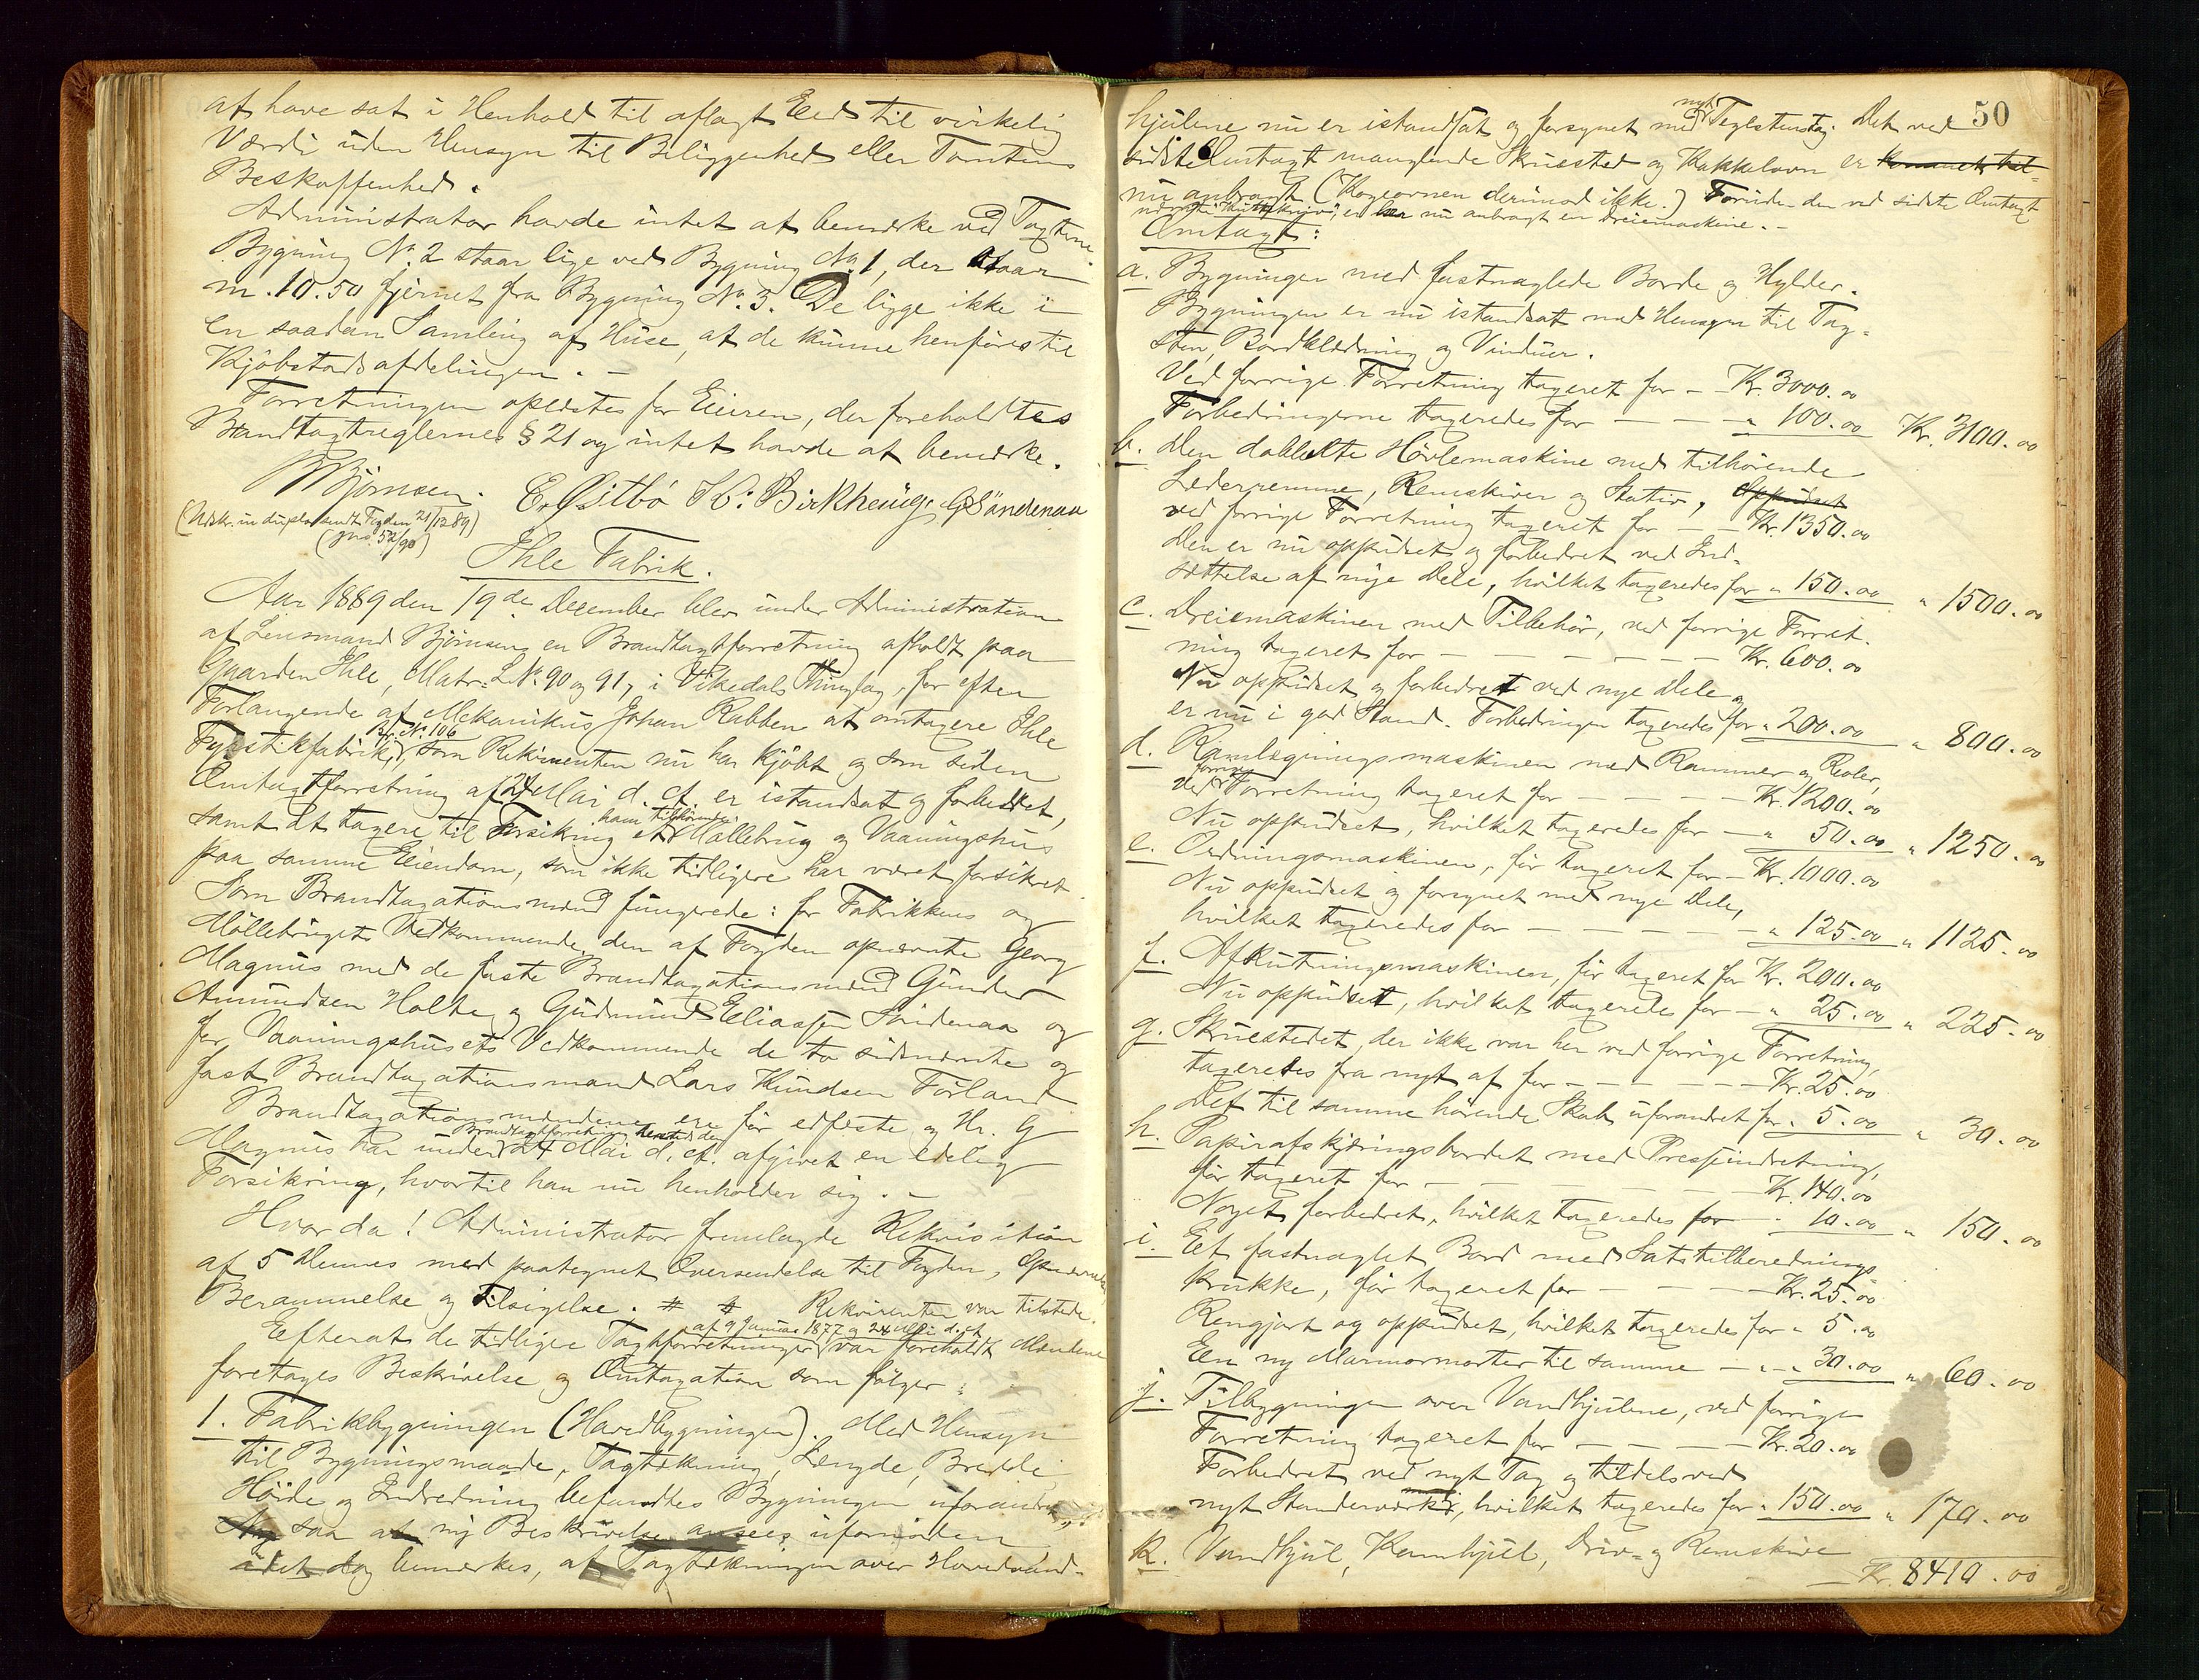 at have sat i Henhold til aflagt Eed til virkelig
Værdi uden Hensyn til Beliggenhed eller Tomtens
Beskaffenhed.
Administrator havde intet at bemærke ved Taxterne.
Bygning No. 2 staar lige ved Bygning No. 1, der staar
m. 10.50 fjernet fra Bygning No. 3. De ligge ikke i
en saadan Samling af Huse, at de kunne henføres til
Kjøbstadsafdelingen. -
Forretningen oplæstes for Eieren, der foreholdtes
Brandtaxtreglernes § 21 og intet havde at bemærke.
Bjørnsen. E. Østbø K: Birkhaug. G Søndenaa
(Udskr. in duplo sendt Fogden 21/12 89)
(jno. 52/90)
Ihle Fabrik.
Aar 1889 den 19de December blev under Administration
af Lensmand Bjørnsen en Brandtaxtforretning afholdt paa
Gaarden Ihle, Matr: L. No. 90 og 91, i Vikedals Thinglag, for efter
Forlangende af Mekanikus Johan Rabben at omtaxere Ihle
Br. No. 106
Fyrstikfabrik, som Rekvirenten nu har kjøbt og som siden
Omtaxtforretning af 24 Mai d. A. er istandsat og forbedret,
ham tilhørende
samt at taxere til Forsikring et Møllebrug og Vaaningshus
paa samme Eiendom, som ikke tidligere har været forsikret.
Som Brandtaxationsmænd fungerede: for Fabrikkens og
Møllebrugets Vedkommende den af Fogden opnævnte Georg
Magnus med de faste Brandtaxationsmænd Gunder
Amundsen Holte og Gudmund Eliassen Søndenaa og
for Vaaningshusets Vedkommende de to sidnævnte og
fast Brandtaxationsmand Lars Knudsen Førland.
Brandtaxationsmændene ere før edfæste og Hr. G
Brandtaxtforretning hersteds den
Magnus har under 24 Mai d. A. afgivet en edelig
Forsikring, hvortil han nu henholder sig. -
Hvor da! Administrator fremlagde Rekvisition
af 5 Dennes med paategnet Oversendelse til Fogden,
Berammelse og Tilsigelse. # # Rekvirenten var tilstede.
af 9 Januar 1877 og 24 Mai d. A.
Efterat de tidligere Taxtforretninger var foreholdt Mændene
foretoges Beskrivelse og Omtaxation som følger:
1. Fabrikbygningen (Hovedbygningen). Med Hensyn
til Bygningsmaade, Tagtækning, Længde, Bredde
Høide og Indredning befandtes Bygningen uforandret,
saa at ny Beskrivelse ansees ufornøden
idet dog bemærkes, at Tagtækningen over Hovedvand-
50
nyt
hjulene nu er istandsat og forsynet med Teglstenstag. Det ved
sidste Omtaxt manglende Skruested og Kakkelovn er
nu anbragt (Kogeovnen derimod ikke.) Foruden den ved sidste Omtaxt
er nu anbragt en Dreiemaskine. -
Omtaxt:
a. Bygningen med fastnaglede Borde og Hylder.
Bygningen er nu istandsat med Hensyn til Tag-
sten, Bordklædning og Vinduer.
Ved forrige Forretning taxeret for - Kr. 3000.00
Forbedringerne taxeredes for - - - " 100.00 Kr. 3100.00
b. Den dobbelte Høvlemaskine med tilhørende
Læderremme, Remskiver og Stativ, Oppudset
ved forrige Forretning taxeret for - - Kr. 1350.00
Den er nu oppudset og forbedret ved Ind-
sættelse af nye Dele, hvilket taxeredes for " 150.00 " 1500.00
c. Dreiemaskinen med Tilbehør, ved forrige Forret-
ning taxeret for - - - - - - Kr. 600.00
Nu oppudset og forbedret ved nye Dele og
er nu i god Stand. Forbedringen taxeredes for " 200.00 " 800.00
d. Ramlægningsmaskinen med Rammer og Reoler,
forrige
ved Forretning taxeret for - - - - Kr. 1200.00
Nu oppudset, hvilket taxeredes for - " 50.00 " 1250.00
e. Ordningsmaskinen, før taxeret for - Kr. 1000.00
Nu oppudset og forsynet med nye Dele,
hvilket taxeredes for - - - - - " 125.00 " 1125.00
f. Afskutningsmaskinen, før taxeret for Kr. 200.00
Nu oppudset, hvilket taxeredes for - " 25.00 " 225.00
g. Skruestedet, der ikke var her ved forrige Forretning,
taxeredes fra nyt af for - - - - - Kr. 25.00
Det til samme hørende Skab uforandret for " 5.00 " 30.00
h. Papirafskjæringsbordet med Presseindretning,
før taxeret for - - - - - - Kr. 140.00
Noget forbedret, hvilket taxeredes for - " 10.00 " 150.00
i. Eet fastnaglet Bord med Satstilberednings-
krukke, før taxeret for - - - - Kr. 25.00
Rengjort og oppudset, hvilket taxeredes for " 5.00
Een ny Marmormorter til samme - - - " 30.00 " 60.00
j. Tilbygningen over Vandhjulene, ved forrige
Forretning taxeret for - - - - Kr. 20.00
Forbedret ved nyt Tag og tildels ved
nyt Standerværk, hvilket taxeredes for " 150.00 " 170.00
k. Vandhjul, Kamhjul, Driv- og Remskive
Kr. 8410.00